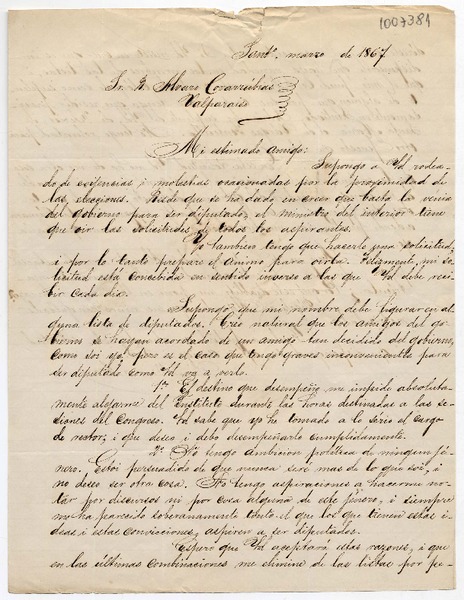 1007381
Santo, marzo de 1867.
Sr. D. Alvaro Covarrúbias
Valparaiso
Mi estimado amigo:
Supongo a Ud rodea-
do de exijencias i molestias ocasionadas por la proximidad de
las elecciones. Desde que se ha dado en creer que basta la venia
del gobierno para ser diputado, el ministro del interior tiene
que oir las solicitudes de todos los aspirantes.
Yo tambien tengo que hacerle una solicitud,
i por lo tanto prepare el ánimo para oirla. Felizmente, mi so-
licitud está concebida en sentido inverso a las que Ud debe reci-
bir cada dia.
Supongo que mi nombre debe figurar en al
guna lista de diputados. Creo natural que los amigos del go-
bierno se hayan acordado de un amigo tan decidido del gobierno,
como soi yo; pero es el caso que tengo graves inconvenientes para
ser diputado como Ud va a verlo.
1º El destino que desempeño me impide absoluta-
mente alejarme del Instituto durante las horas destinadas a las se-
siones del Congreso. Ud sabe que yo he tomado a lo sério el cargo
de rector, i que deseo i debo desempeñarlo cumplidamente.
2º No tengo ambicion política de ningun jé-
nero. Estoi persuadido de que nunca seré mas de lo que soi, i
no deseo ser otra cosa. No tengo aspiraciones a hacerme no-
tar por discursos ni por cosa alguna de este jénero, i siempre
me ha parecido soberanamente tonto el que los que tienen estas
ideas i estas convicciones, aspiren a ser diputados.
Espero que Ud aceptará estas razones, i que
en las últimas combinaciones me elimine de las listas por pe-